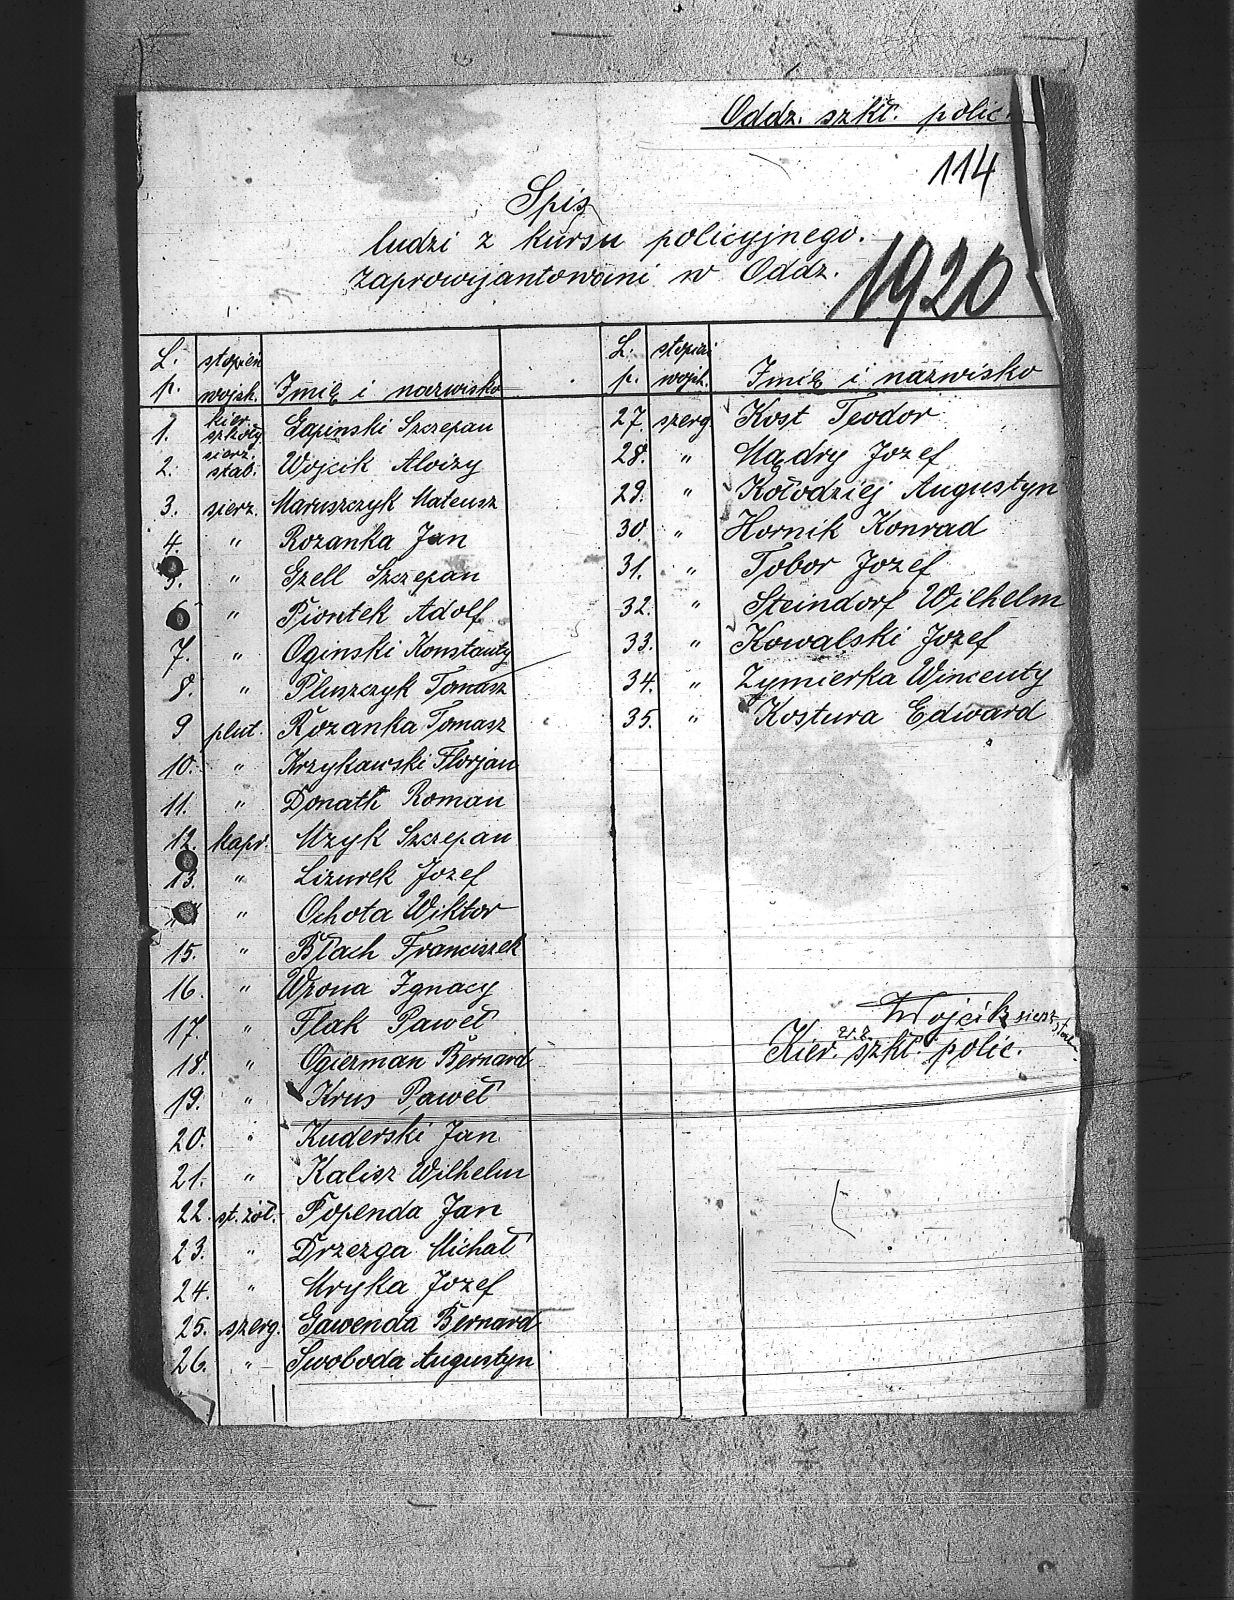 Oddz. szkł. polic.
114
Spis
ludzi z kursu policyjnego.
zaprowijantowani w Oddz.
1920
L. p. stopień wojsk. Imię i nazwisko
1. kier. szkoły Gapinski Szczepan
2. sierż. stab. Wojcik Aloizy
3. sierz. Maruszczyk Mateusz
4. " Rozanka Jan
5. " Gzell Szczepan
6 " Piontek Adolf
7. " Oginski Konstanty
8. " Pluszczyk Tomasz
9 plut. Rozanka Tomasz
10. " Krzykawski Florjan
11. " Donath Roman
12. kapr. Mzyk Szczepan
13. " Lizurek Jozef
" Ochota Wiktor
15. " Błach Franciszek
16. " Wrona Ignacy
17. " Flak Paweł
18. " Ogierman Bernard
19. " Krus Paweł
20. " Kuderski Jan
21. " Kalisz Wilhelm
22. st. żoł. Popenda Jan
23. " Drzezga Michał
24. " Mryka Jozef
25. szerg. Gawenda Bernard
26. " Swoboda Augustyn
L. p. stopień wojsk. Imię i nazwisko
27. szerg Kost Teodor
28. " Mądry Jozef
29. " Kołodziej Augustyn
30. " Hornik Konrad
31. " Tobor Jozef
32. " Steindorf Wilhelm
33. " Kowalski Jozef
34. " Zymierka Wincenty
35. " Kostura Edward
Wojcik sierz. stab.
Kier. szkł. polic.